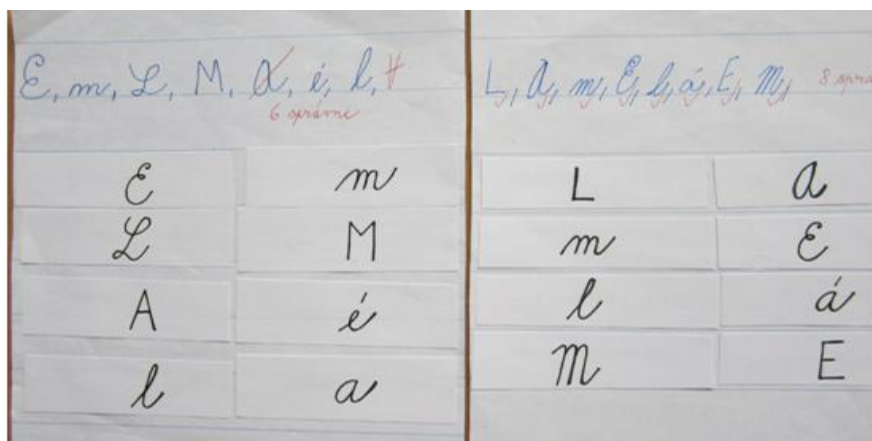 E, m, L, M, A, é, l, H
6 správne
E m
L M
A é
l a
L, A, m, E, l, á, E, M,
8 sprá
L A
m E
l á
M E